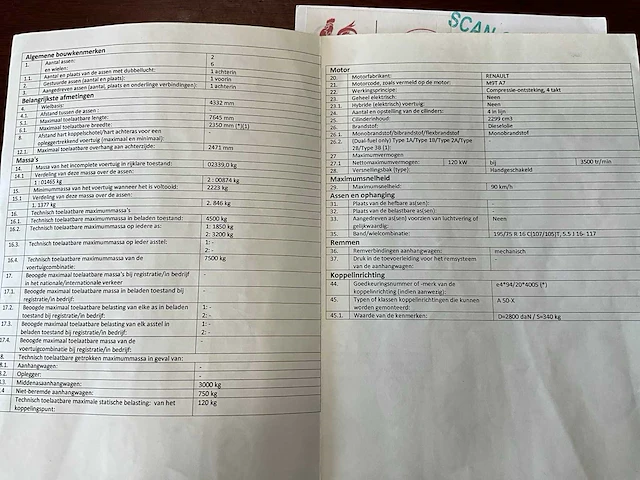 SCAN
Algemene bouwkenmerken
1. Aantal assen: 2
en wielen: 6
1.1. Aantal en plaats van de assen met dubbellucht: 1 achterin
2. Gestuurde assen (aantal en plaats): 1 voorin
3. Aangedreven assen (aantal, plaats en onderlinge verbindingen): 1 achterin
Belangrijkste afmetingen
4. Wielbasis: 4332 mm
4.1. Afstand tussen de assen :
5.1. Maximaal toelaatbare lengte: 7645 mm
6.1. Maximaal toelaatbare breedte: 2350 mm (*)(1)
8. Afstand hart koppelschotel/hart achteras voor een
opleggertrekkend voertuig (maximaal en minimaal):
12.1. Maximaal toelaatbare overhang aan achterzijde: 2471 mm
Massa's
14. Massa van het incomplete voertuig in rijklare toestand: 02339,0 kg
14.1 Verdeling van deze massa over de assen:
1 : 01465 kg 2 : 00874 kg
15. Minimummassa van het voertuig wanneer het is voltooid: 2223 kg
15.1 Verdeling van deze massa over de assen:
1. 1377 kg 2. 846 kg
16. Technisch toelaatbare maximummassa's
16.1. Technisch toelaatbare maximummassa in beladen toestand: 4500 kg
16.2. Technisch toelaatbare maximummassa op iedere as: 1: 1850 kg
2: 3200 kg
16.3. Technisch toelaatbare maximummassa op ieder asstel: 1: -
2: -
16.4. Technisch toelaatbare maximummassa van de 7500 kg
voertuigcombinatie:
17. Beoogde maximaal toelaatbare massa's bij registratie/in bedrijf -
in het nationale/internationale verkeer
17.1. Beoogde maximaal toelaatbare massa in beladen toestand bij -
registratie/in bedrijf:
17.2. Beoogde maximaal toelaatbare belasting van elke as in beladen 1: -
toestand bij registratie/in bedrijf: 2: -
17.3. Beoogde maximaal toelaatbare belasting van elk asstel in 1: -
beladen toestand bij registratie/in bedrijf: 2: -
17.4. Beoogde maximaal toelaatbare massa van de -
voertuigcombinatie bij registratie/in bedrijf:
8. Technisch toelaatbare getrokken maximummassa in geval van:
8.1. Aanhangwagen: -
8.2. Oplegger: -
8.3. Middenasaanhangwagen: 3000 kg
8.4 Niet-beremde aanhangwagen: 750 kg
Technisch toelaatbare maximale statische belasting: van het 120 kg
koppelingspunt:
Motor
20. Motorfabrikant: RENAULT
21. Motorcode, zoals vermeld op de motor: M9T A7
22. Werkingsprincipe: Compressie-ontsteking, 4 takt
23. Geheel elektrisch: Neen
23.1. Hybride (elektrisch) voertuig: Neen
24. Aantal en opstelling van de cilinders: 4 in lijn
25. Cilinderinhoud: 2299 cm3
26. Brandstof: Dieselolie
26.1. Monobrandstof/bibrandstof/flexbrandstof Monobrandstof
26.2. (Dual-fuel only) Type 1A/Type 1B/Type 2A/Type -
2B/Type 3B (1):
27. Maximumvermogen
27.1 Nettomaximumvermogen: 120 kW bij 3500 tr/min
28. Versnellingsbak (type): Handgeschakeld
Maximumsnelheid
29. Maximumsnelheid: 90 km/h
Assen en ophanging
31. Plaats van de hefbare as(sen): -
32. Plaats van de belastbare as(sen): -
33. Aangedreven as(sen) voorzien van luchtvering of Neen
gelijkwaardig:
35. Band/wielcombinatie: 195/75 R 16 C(107/105)T, 5.5 J 16- 117
Remmen
36. Remverbindingen aanhangwagen: mechanisch
37. Druk in de toevoerleiding voor het remsysteem -
van de aanhangwagen:
Koppelinrichting
44. Goedkeuringsnummer of -merk van de e4*94/20*4005 (*)
koppelinrichting (indien aanwezig):
45. Typen of klassen koppelinrichtingen die kunnen A 50-X
worden gemonteerd:
45.1. Waarde van de kenmerken: D=2800 daN / S=340 kg